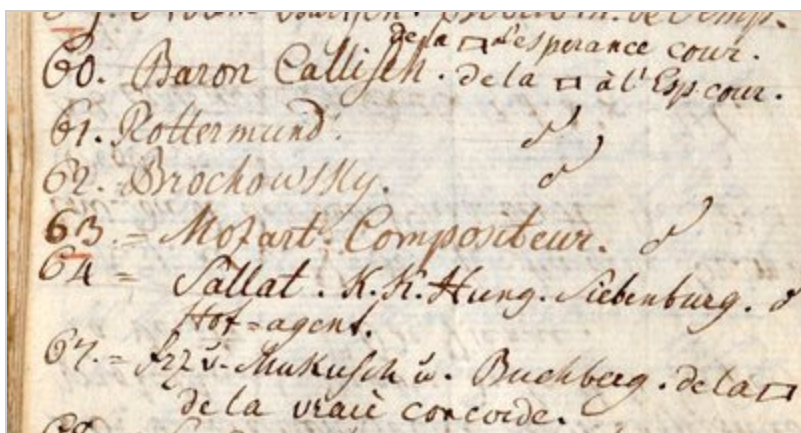 de la □ l'esperance cour.
60. Baron Callisch. de la □ à l'Esp. cour.
61. Rottermund.
62. Brochowsky.
63. = Mozart. Compositeur.
64 = Sallat. K. K. Hung. Siebenburg.
Hof=agent.
v. Mukusch u. Buchberg. de la □
de la vraie concorde.